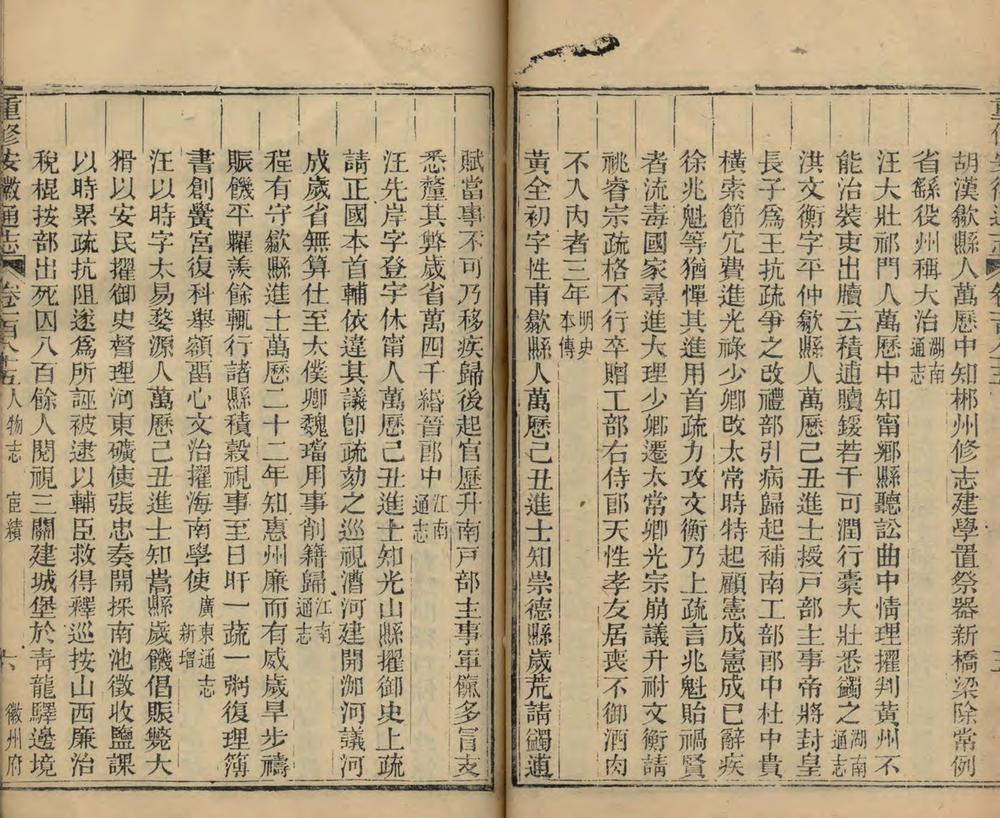 胡漢歙縣人萬歷中知郴州修志建學置祭器新橋梁除常例
省繇役州稱大治湖南通志
汪大壯祁門人萬歷中知甯鄉縣聽訟曲中情理擢判黃州不
能治裝吏出牘云積逋贖鍰若干可潤行橐大壯悉蠲之湖南通志
洪文衡字平仲歙縣人萬歷己丑進士授戸部主事帝將封皇
長子爲王抗疏爭之改禮部引病歸起補南工部郎中杜中貴
橫索節冗費進光祿少卿改太常時特起顧憲成憲成已辭疾
徐兆魁等猶憚其進用首疏力攻文衡乃上疏言兆魁貽禍賢
者流毒國家尋進大理少卿遷太常卿光宗崩議升祔文衡請
祧睿宗疏格不行卒贈工部右侍郎天性孝友居喪不御酒肉
不入內者三年明史本傳
黃全初字性甫歙縣人萬歷己丑進士知崇德縣歲荒請蠲逋
賦當事不可乃移疾歸後起官歷升南戸部主事軍儲多冒支
悉釐其弊歲省萬四千緡晉郎中江南通志
汪先岸字登字休甯人萬歷己丑進士知光山縣擢御史上疏
請正國本首輔依違其議卽疏劾之巡視漕河建開泇河議河
成歲省無算仕至太僕卿魏璫用事削籍歸江南通志
程有守歙縣進士萬歷二十二年知惠州廉而有威歲旱步禱
賑饑平糶羨餘輒行諸縣積穀視事至日旰一蔬一粥復理簿
書創黌宮復科舉額畱心文治擢海南學使廣東通志新增
汪以時字太易婺源人萬歷己丑進士知嵩縣歲饑倡賑斃大
猾以安民擢御史督理河東礦使張忠奏開採南池徵收鹽課
以時累疏抗阻遂爲所誣被逮以輔臣救得釋巡按山西廉治
稅棍按部出死囚八百餘人閱視三關建城堡於靑龍驛邊境
重修安徽通志 卷一百八十五 人物志 宦績 六 徽州府